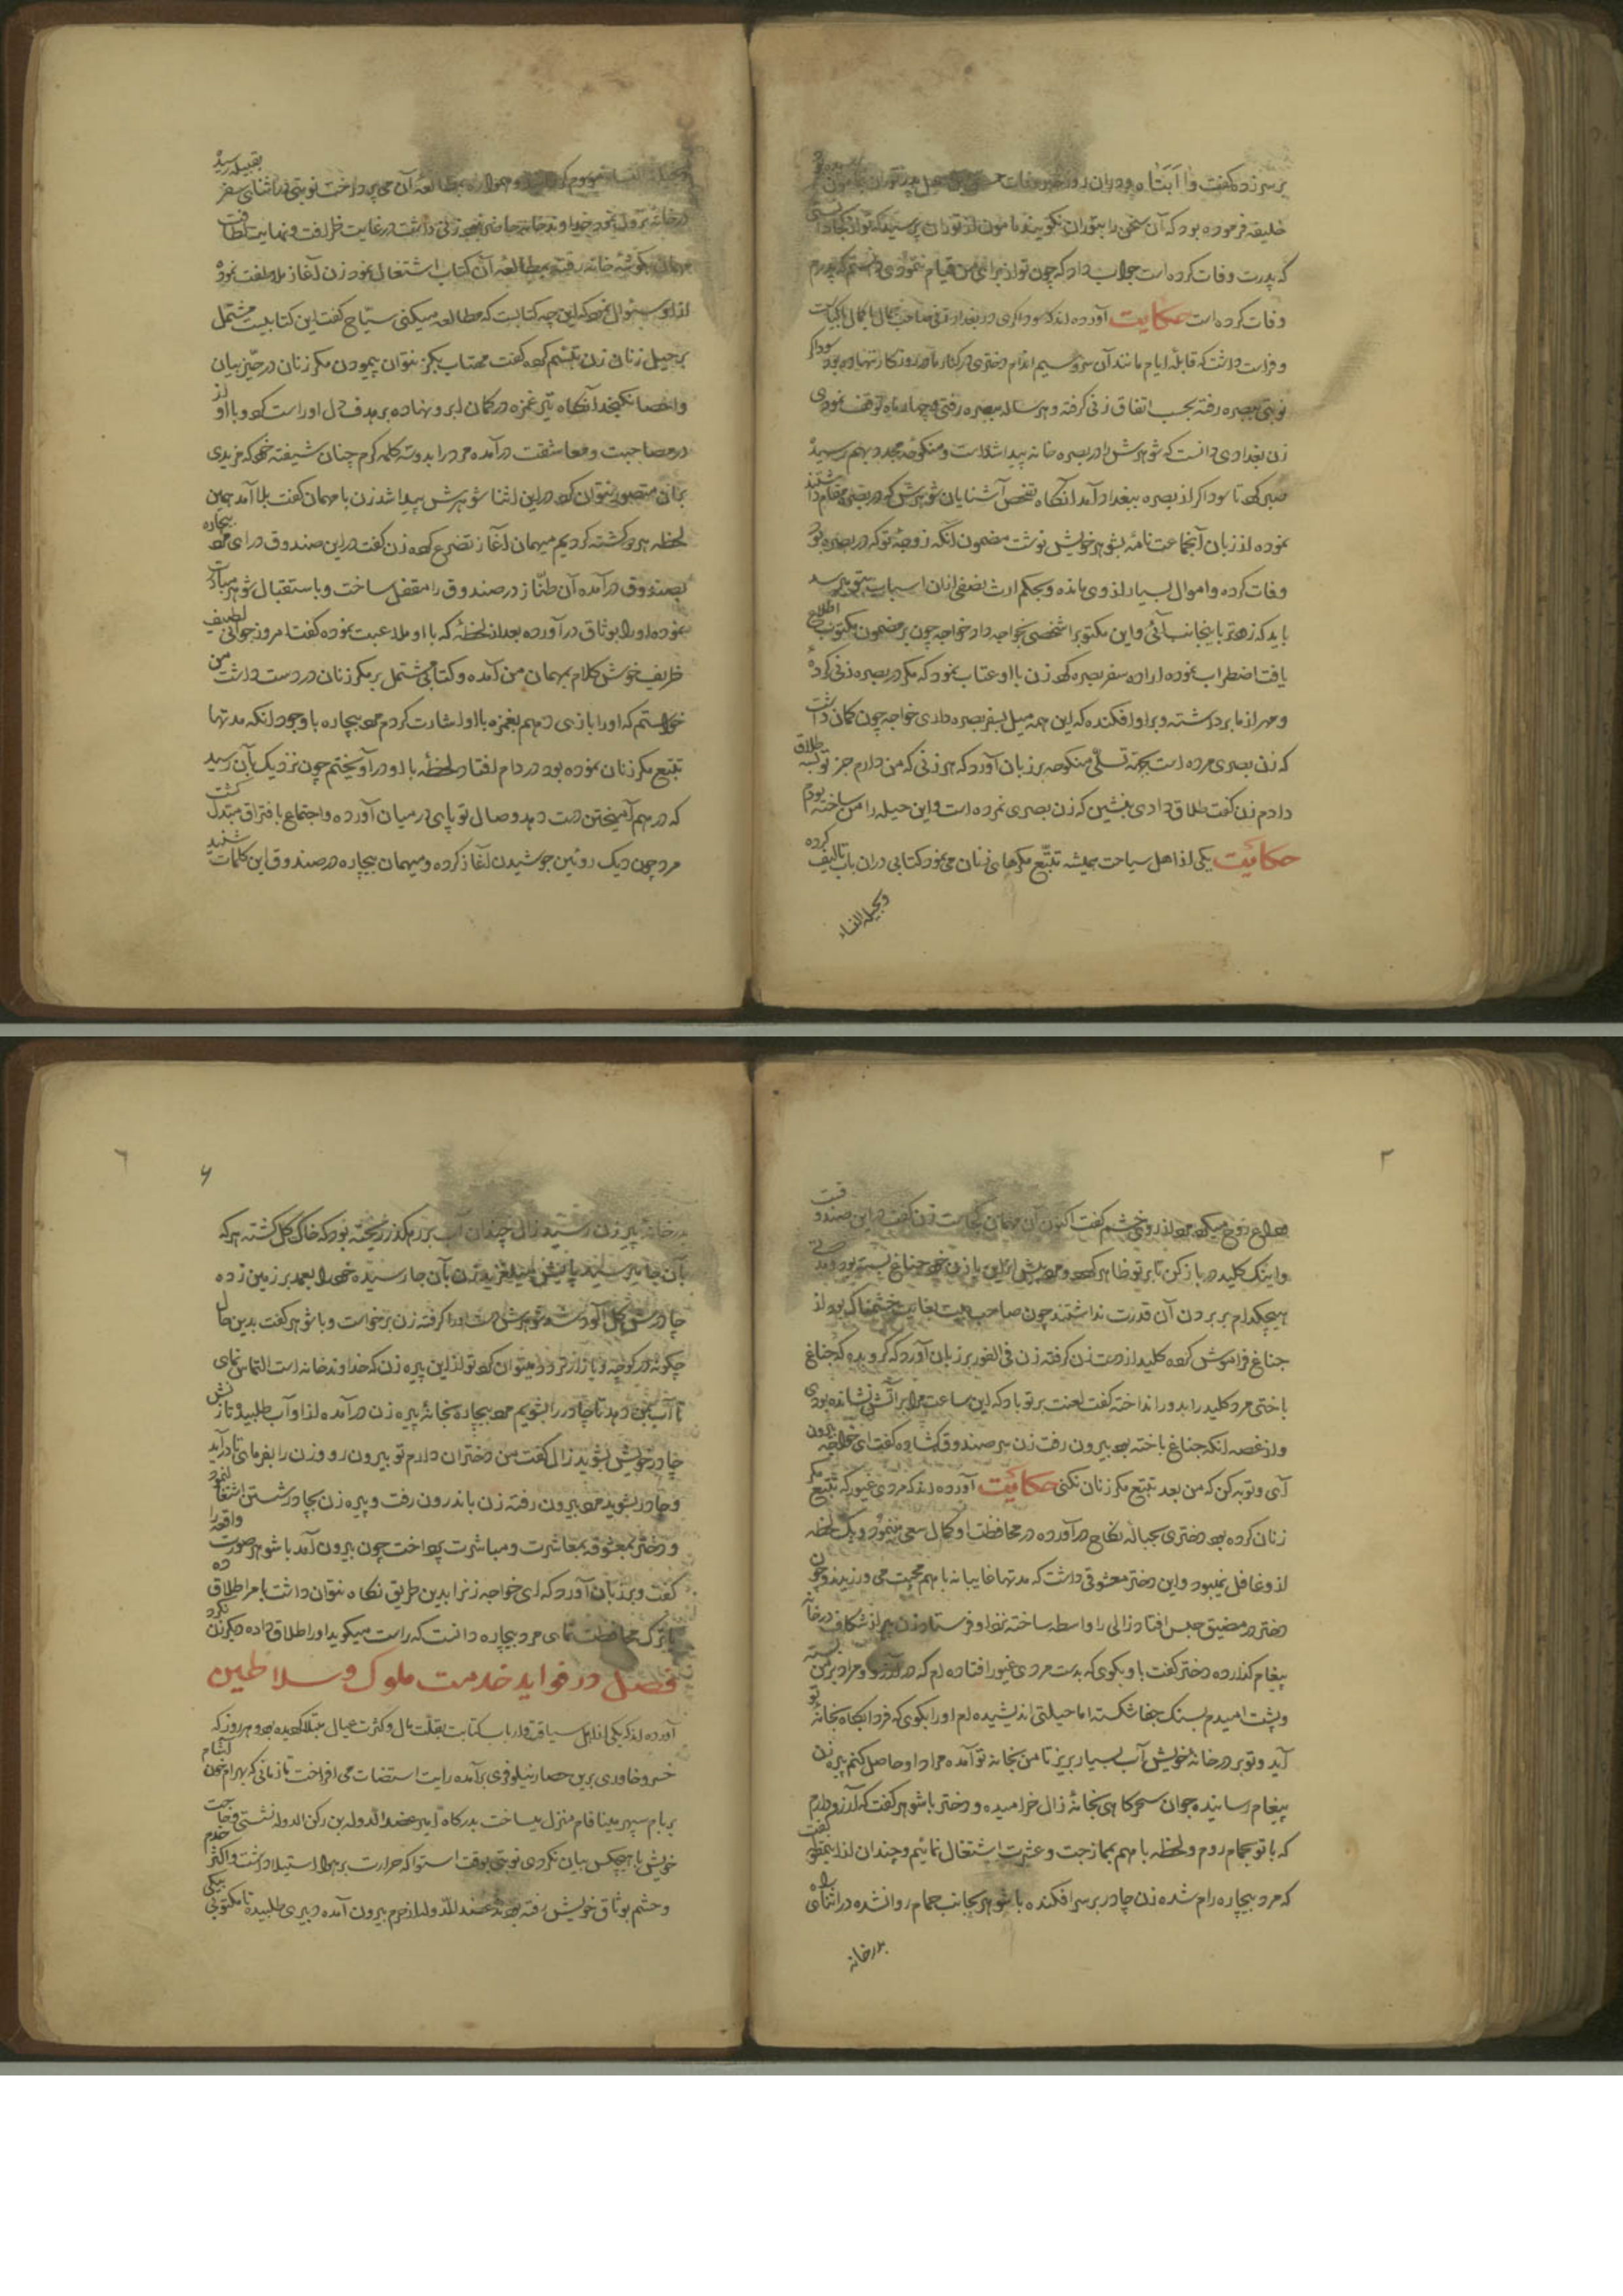 بر سر زده گفت وا ابتاه و دران روز خبر وفات حسن بن سهل پدر توران بمامون رسیده و
خلیقه فرموده بود که آن سخن را بتوران نکویند مامون از توران پرسید که تو از کجا دانستی
که پدرت وفات کرده است جواب داد که چون تو از برای من قیام ننمودی دانستم که پدرم
وفات کرده است حکایت آورده اند که سوداکری در بغداد زنی صاحب جمال با کمال با کیاست
و فراست داشت که قابلهٔ ایام مانند آن سرو سیم اندام دختری در کنار مادر روزکار ننهاده بود سوداکر
نوبتی ببصره رفته بحسب اتفاق زنی کرفته و هر ساله ببصره رفتی و چهار ماه توقف نمودی
زن بغدادی دانست که شوهرش را در بصره خانه پیدا شده است و منکوحهٔ مجدد بهم رسیده
صبر کرد تا سوداکر از بصره ببغداد آمد آنکاه تفحص آشنایان شوهرش که در بصره مقام داشتند
نموده از زبان آنجماعت نامهٔ بشوهر خویش نوشت مضمون آنکه زوجهٔ تو که در بصره بود
وفات کرده و اموال بسیار از وی مانده و بحکم ارث نصفی از ان اسباب بتو میرسد
باید که زودتر باینجانب آئی و این مکتوب را شخصی بخواجه داد خواجه چون بر مضمون مکتوب اطلاع
یافت اضطراب نموده ارادهٔ سفر بصره کرد زن با او عتاب نمود که مکر در بصره زنی کردهٔ
و مهر از ما برداشته و بر او افکنده که این همه میل بسفر بصره داری خواجه چون کمان داشت
که زن بصری مرده است بجهة تسلّی منکوحه بر زبان آورد که هر زنی که من دارم جز تو بسه طلاق
دادم زن کفت طلاق دادی بنشین که زن بصری نمرده است و این حیله را من ساخته بودم
حکایت یکی از اهل سیاحت همیشه تتبّع مکرهای زنان می نمود کتابی دران باب تالیف کرده
و بحیلة النساء
و بحیلة النساء موسوم کردانید و همواره بمطالعهٔ آن می پرداخت نوبتی در اثنای سفر بقبیله رسید
در خانهٔ نزول نمود خداوند خانه حاضر نبود زنی داشت در غایت ظرافت و نهایت لطافت
مهمان بکوشهٔ خانه رفته بمطالعهٔ آن کتاب اشتغال نمود زن آغاز ملاطفت نموده
از او سوال نمود که این چه کتابست که مطالعه میکنی سیّاح کفت این کتابیست مشتمل
بر حیل زنان زن تبسّم کرد کفت مهتاب بکز نتوان پیمودن مکر زنان در حیّز بیان
و احصا نکنجد آنکاه تیر غمزه در کمان ابرو نهاده بر هدف دل او راست کرد و با او از
در مصاحبت و معاشقت درآمده مرد را بدو سه کلمه کرم چنان شیفته خود که مزیدی
بران متصور نتوان کرد در این اثنا شوهرش پیدا شد زن با مهمان کفت بلا آمد همین
لحظه هر دو کشته کردیم میهمان آغاز تضرع کرد زن کفت در این صندوق درای مرد بیچاره
بصندوق درآمده آن طنّاز در صندوق را مقفل ساخت و باستقبال شوهر مبادرت
نموده او را بوثاق درآورده بعد از لحظهٔ که با او ملاعبت نموده کفت امروز جوانی لطیف
ظریف خوش کلام بمهمان من آمده و کتابی مشتمل بر مکر زنان در دست داشت من
خواستم که او را بازی دهم بغمزه با او اشارت کردم مرد بیچاره با وجود آنکه مدتها
تتبع مکر زنان نموده بود در دام افتاد لحظهٔ با او درآویختم چون نزدیک بآن رسید
که در هم آمیختن دست دهد وصال تو پای در میان آورده و اجتماع بافتراق مبتدل کشت
مرد چون دیک روئین جوشیدن آغاز کرده و میهمان بیچاره در صندوق این کلمات شنیده
۳
وداع روح میکرد مرد از روی خشم کفت اکنون آن مهمان کجاست زن کفت در این صندوقست
و اینک کلید در باز کن تا بر تو ظاهر کردد و مرد پیش از این با زن خود جناغ بسته بود و مدتی
هیچکدام بر بردن آن قدرت نداشتند چون صاحب بیت بغایت خشمناک بود از
جناغ فراموش کرده کلید از دست زن کرفته زن فی الفور بر زبان آورد که کرو بده که جناغ
باختی مرد کلید را بدور انداخته کفت لعنت بر تو باد که این ساعت مرا بر آتش نشانده بودی
و از غصه آنکه جناغ باخته بود بیرون رفت زن سر صندوق کشاده کفت ای خواجه بیرون
آی و توبه کن که من بعد تتبع مکر زنان نکنی حکایت آورده اند که مردی غیور که تتبع مکر
زنان کرده بود دختری بحبالهٔ نکاح درآورده در محافظت او کمال سعی مینمود و یک لحظه
از و غافل نمیبود و این دختر معشوقی داشت که مدتها غایبانه با هم محبت می ورزیدند و چون
دختر در مضیق حبس افتاد زالی را واسطه ساخته نزد او فرستاد زن پیر از شکاف در خانه
پیغام کذارده دختر کفت با و بکوی که بدست مردی غیور افتاده ام که در آرزو و مراد بر من بسته
و پشت امیدم بسنک جفا شکسته اما حیلتی اندیشیده ام او را بکوی که فردا بکاه بخانهٔ تو
آید و تو بر در خانهٔ خویش آب بسیار بریز تا من بخانه تو آمده مراد او حاصل کنم پیره زن
پیغام رسانیده جوان سحرکاهی بخانهٔ زال خرامیده و دختر با شوهر کفت که آرزو دارم
که با تو بحمام روم و لحظه با هم بممازجت و عشرت اشتغال نمائیم و چندان از اینمقوله کفت
که مرد بیچاره رام شده زن چادر بر سر افکنده با شوهر بجانب حمام روان شده در اثنای راه
بدر خانه
٦
۶
بدر خانهٔ پیر زن رسید زال چندان آب بر رهکذر ریخته بود که خاک کل کشته هر که
بآن جا میرسید پایش میلغزید زن بآن جا رسیده خود را بعمد بر زمین زده
چادرش کل آلود شد شوهرش دست او را کرفته زن برخواست و با شوهر کفت بدین حال
چکونه در کوچه و بازار تردد میتوان کرد تو از این پیره زن که خداوند خانه است التماس نمای
تا آب بمن دهد تا چادر را بشویم مرد بیچاره بخانهٔ پیره زن درآمده از او آب طلبید تا زنش
چادر خویش بشوید زال کفت من دختران دارم تو بیرون رو و زن را بفرمای تا درآید
و چادر بشوید مرد بیرون رفته زن باندرون رفت و پیره زن بچادر شستن اشتغال نمود
و دختر بمعشوقه بمعاشرت و مباشرت پرداخت چون بیرون آمد با شوهر صورت واقعه را
کفت و بر زبان آورد که ای خواجه زنرا بدین طریق نکاه نتوان داشت یا مرا طلاق ده
یا ترک محافظت نمای مرد بیچاره دانست که راست میکوید او را طلاق داده دیکر زن نکرد
فصل در فواید خدمت ملوک و سلاطین
آورده اند که یکی از اهل سیاق و ارباب کتابت بقلّت مال و کثرت عیال مبتلا کردیده بود هر روز که
خسرو خاوری برین حصار نیلوفری برآمده رایت استضات می افراخت تا زمانی که بهرام خون آشام
بر بام سپهر مینا فام منزل میساخت بدرکاه امیر عضد الدوله بن رکن الدوله نشستی و حاجت
خویش با هیچکس بیان نکردی نوبتی بوقت استوا که حرارت بر هوا استیلا داشت و اکثر خدم
و حشم بوثاق خویش رفته بودند عضد الدوله از حرم بیرون آمده دبیری طلبید تا مکتوبی بیکی